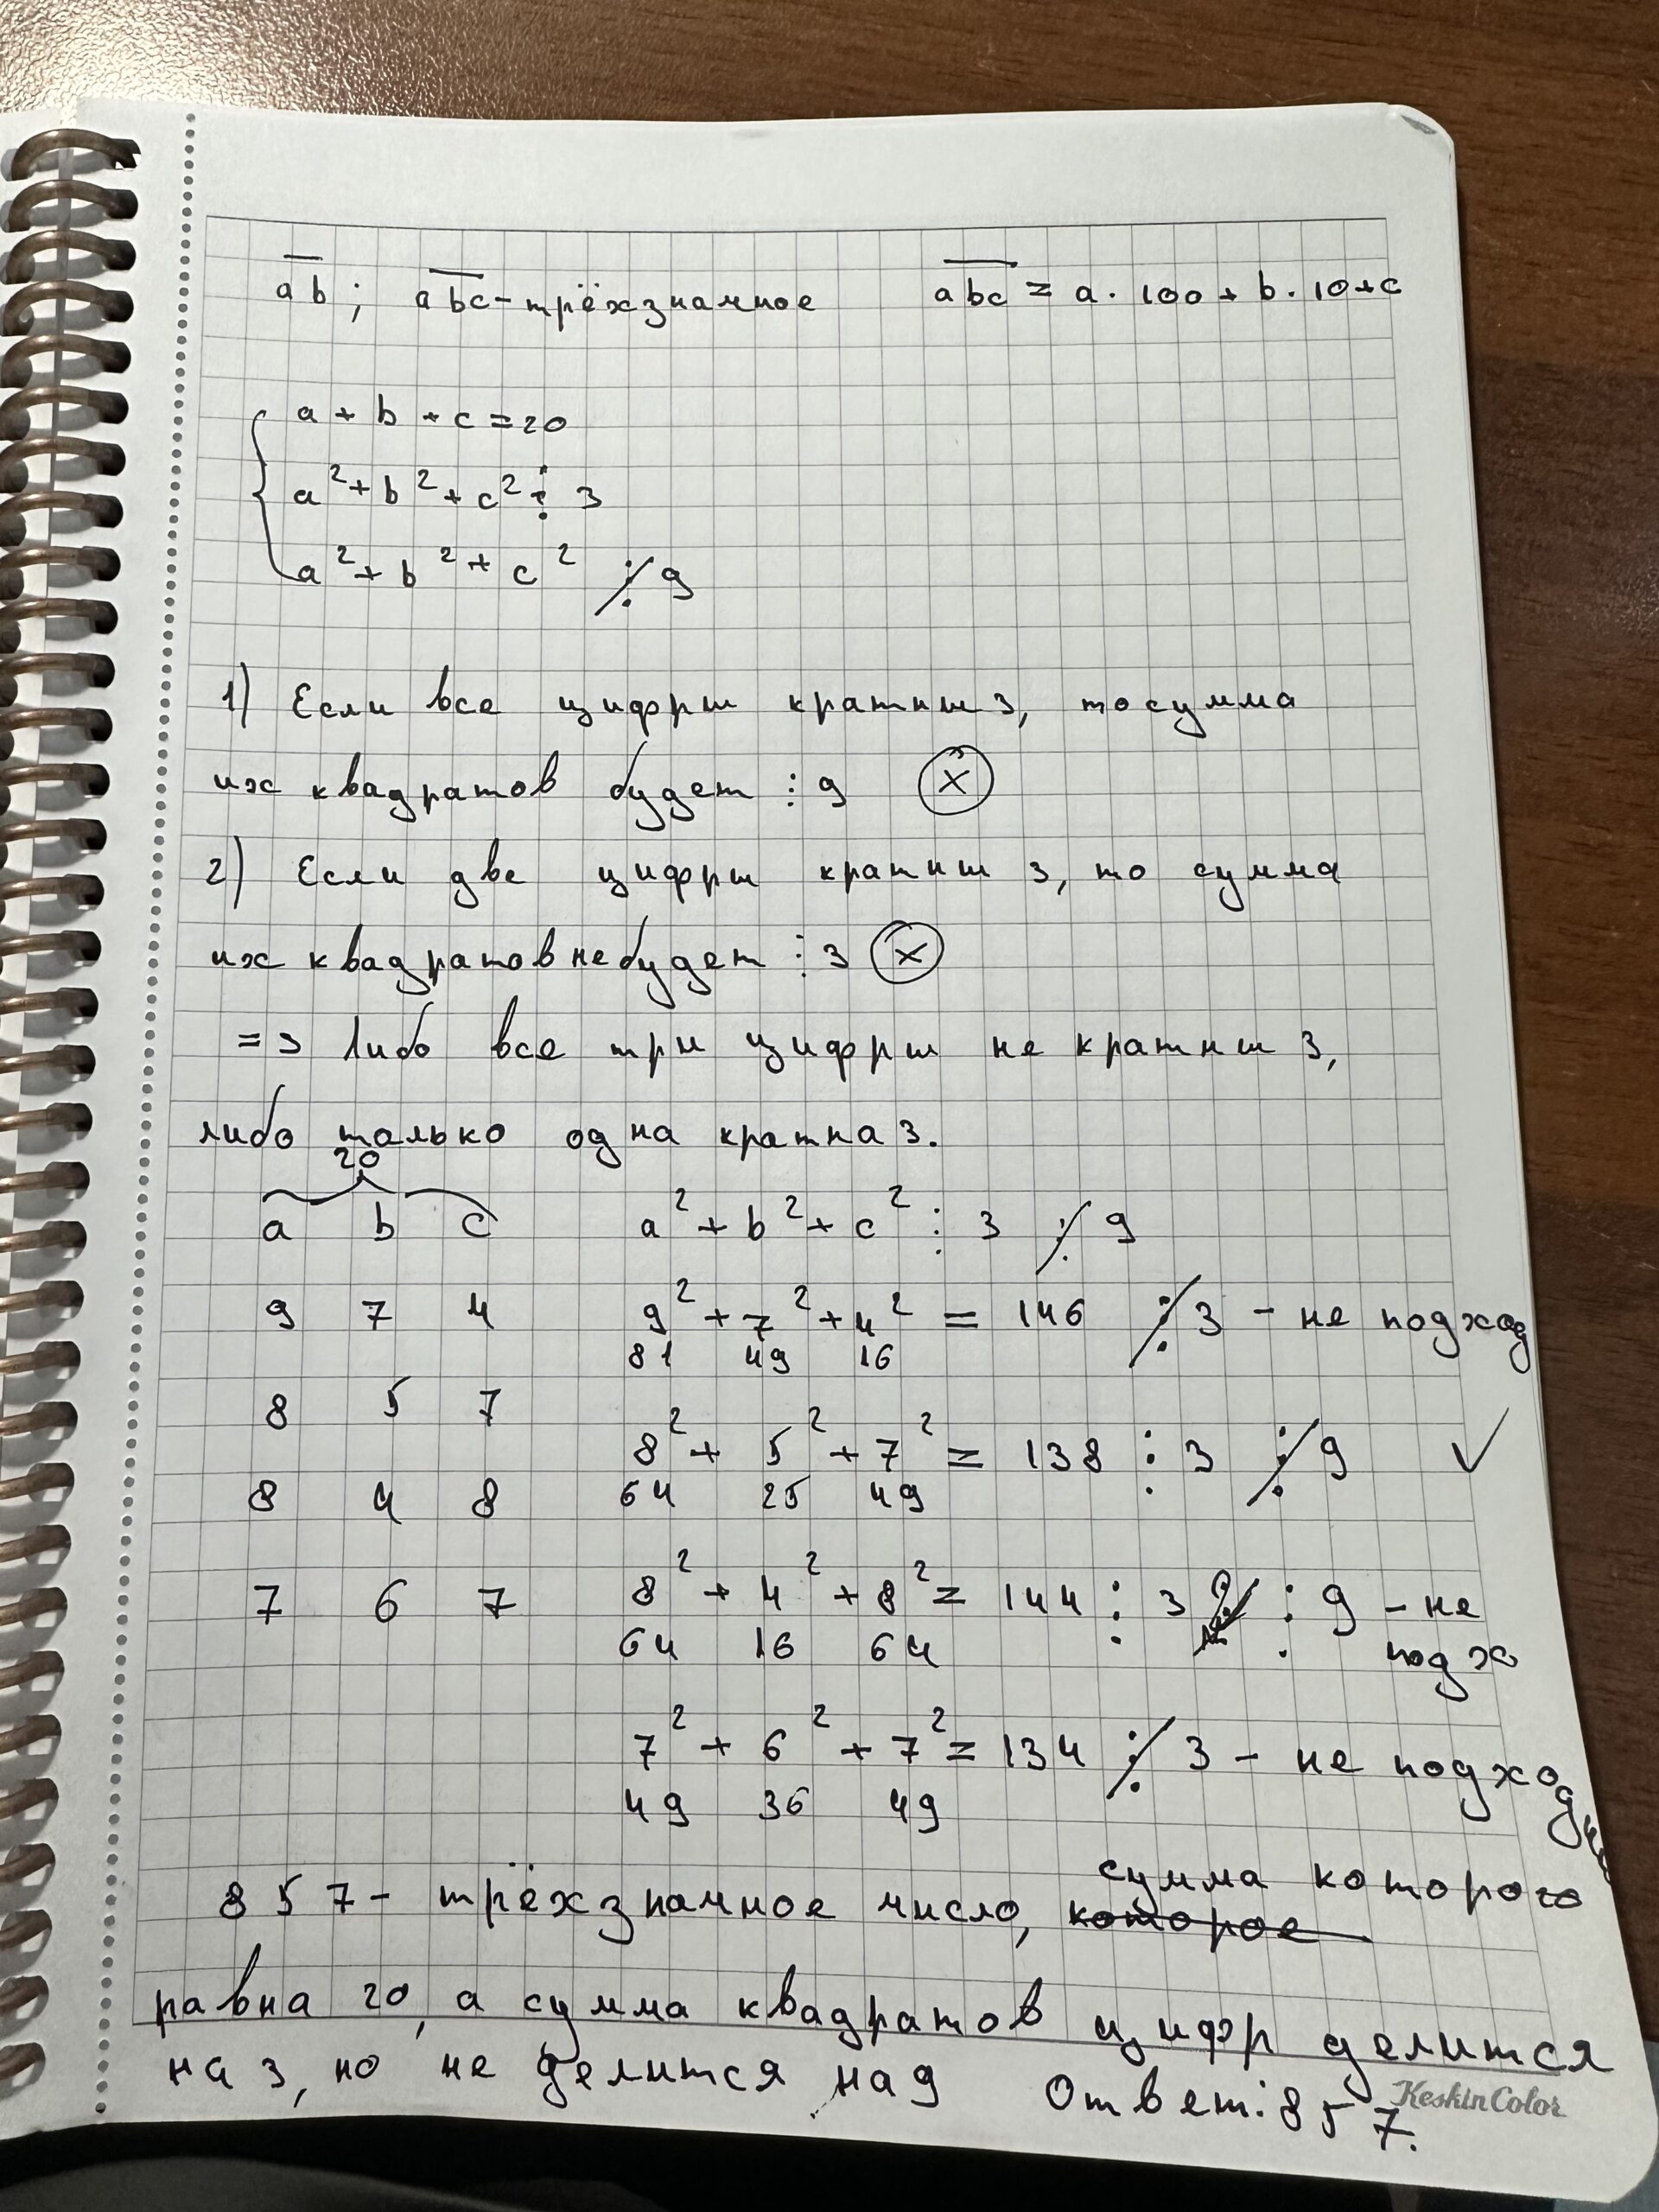 ab; abc - трёхзначное abc = a · 100 + b · 10 + c
a + b + c = 20
a² + b² + c² ⋮ 3
a² + b² + c² ⋮̸ 9
1) Если все цифры кратны 3, то сумма
их квадратов будет ⋮ 9 ⓧ
2) Если две цифры кратны 3, то сумма
их квадратов не будет ⋮ 3 ⓧ
=> Либо все три цифры не кратны 3,
либо только одна кратна 3.
20
a b c a² + b² + c² ⋮ 3 ⋮̸ 9
9 7 4 9² + 7² + 4² = 146 ⋮̸ 3 - не подход
81 49 16
8 5 7 8² + 5² + 7² = 138 ⋮ 3 ⋮̸ 9 ✓
8 4 8 64 25 49
7 6 7 8² + 4² + 8² = 144 ⋮ 3 ⋮ 9 - не
64 16 64 подх
7² + 6² + 7² = 134 ⋮̸ 3 - не подход
49 36 49
857 - трёхзначное число, которое сумма которого
равна 20, а сумма квадратов цифр делится
на 3, но не делится на 9 Ответ: 857.
Keskin Color